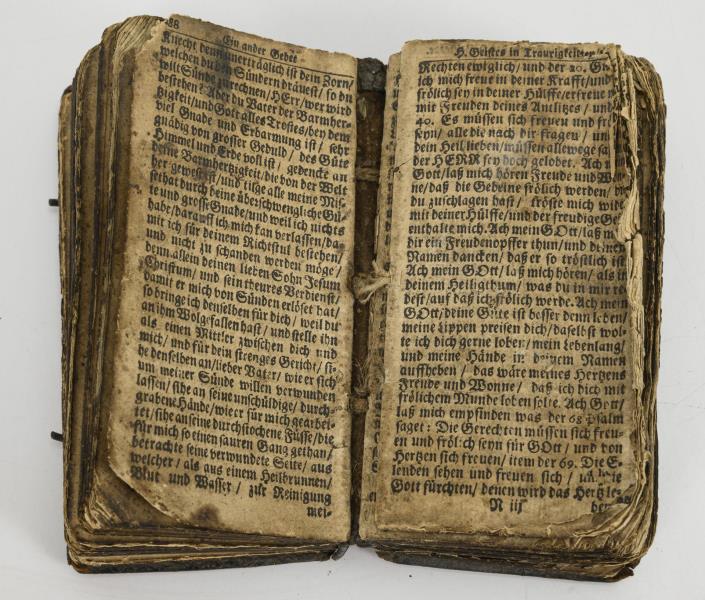 88
Ein ander Gebet
Knecht denn unerträglich ist dein Zorn/
welchen du den Sündern dräuest/ so du
wilt Sünde zurechnen/ HErr/ wer wird
bestehen? Aber du Vater der Barmher-
tzigkeit/ und Gott alles Trostes/ bey dem
viel Gnade und Erbarmung ist/ sehr
gnädig von grosser Geduld/ des Güte
Himmel und Erde voll ist/ gedencke an
deine Barmhertzigkeit/ die von der Welt
her gewest ist/ und tilge alle meine Mis-
sethat durch deine überschwengliche Gü-
te und grosse Gnade/ und weil ich nichts
habe/ darauff ich mich kan verlassen/ da-
mit ich für deinem Richtstul bestehen/
und nicht zu schanden werden möge/
denn allein deinen lieben Sohn Jesum
Christum/ und sein theures Verdienst/
damit er mich von Sünden erlöset hat/
so bringe ich denselben für dich/ weil du
an ihm Wolgefallen hast/ und stelle ihn
als einen Mittler zwischen dich und
mich/ und für dein strenges Gericht/ si-
he denselben an/ lieber Vater/ wie er sich
um meiner Sünde willen verwunden
lassen/ sihe an seine unschüldige/ durch-
grabene Hände/ wie er für mich gearbei-
tet/ sihe an seine durchstochene Füsse/ die
für mich so einen sauren Gang gethan/
betrachte seine verwundete Seite/ aus
welcher/ als aus einem Heilbrunnen/
Blut und Wasser/ zur Reinigung
mei-
H. Geistes in Traurigkeit
Rechten ewiglich/ und der 20.
ich mich freue in deiner Krafft/ und
frölich sey in deiner Hülffe/ erfreue
mit Freuden deines Antlitzes/ und
40. Es müssen sich freuen und
seyn/ alle die nach dir fragen/ un
dein Heil lieben/ müssen allewege sa
der HERR sey hoch gelobet. Ach
Gott/ laß mich hören Freude und
ne/ daß die Gebeine frölich werden/
du zuschlagen hast/ tröste mich wid
mit deiner Hülffe/ und der freudige Ge
enthalte mich. Ach mein GOtt/ laß
dir ein Freudenopffer thun/ und deinen
Namen dancken/ daß er so tröstlich ist
Ach mein GOtt/ laß mich hören/ als in
deinem Heiligthum/ was du in mir re
dest/ auf daß ich frölich werde. Ach mein
GOtt/ deine Güte ist besser denn leben/
meine Lippen preisen dich/ daselbst wol-
te ich dich gerne loben/ mein Lebenlang/
und meine Hände in deinem Namen
auffheben/ das wäre meines Hertzens
Freude und Wonne/ daß ich dich mit
frölichem Munde loben solte. Ach Gott/
laß mich empfinden was der 68 Psalm
saget: Die Gerechten müssen sich freu-
en und frölich seyn für GOtt/ und von
Hertzen sich freuen/ item der 69. Die E-
lenden sehen und freuen sich/ und die
Gott fürchten/ denen wird das Hertz le-
N iij
ben